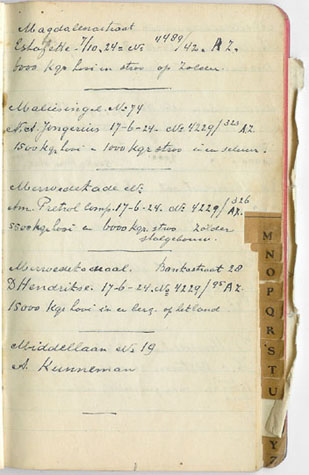 Magdalenastraat
Estafette. 7/10.24= No 4489/42. A.Z.
6000 kgr hooi en stroo op zolder
Maliesingel. No 74
N.A. Jongerius 17-6-24. No 4229/323 A.Z.
1500 kg. hooi en 1000 kgr stroo in een schuur.
Merwedekade No.
Am. Petrol Comp. 17-6-24. No 4229/326 A.Z.
5500 kg hooi en 6000 kgr. stroo zolder
stalgebouw.
Merwedekanaal. Bankastraat 28
D Hendrikse. 17-6-24. No 4229/95 A.Z.
15000 kgr hooi in een berg. op het land
Middellaan No 19
A. Kunneman
M
N
O
P
Q
R
S
T
U
Y
Z